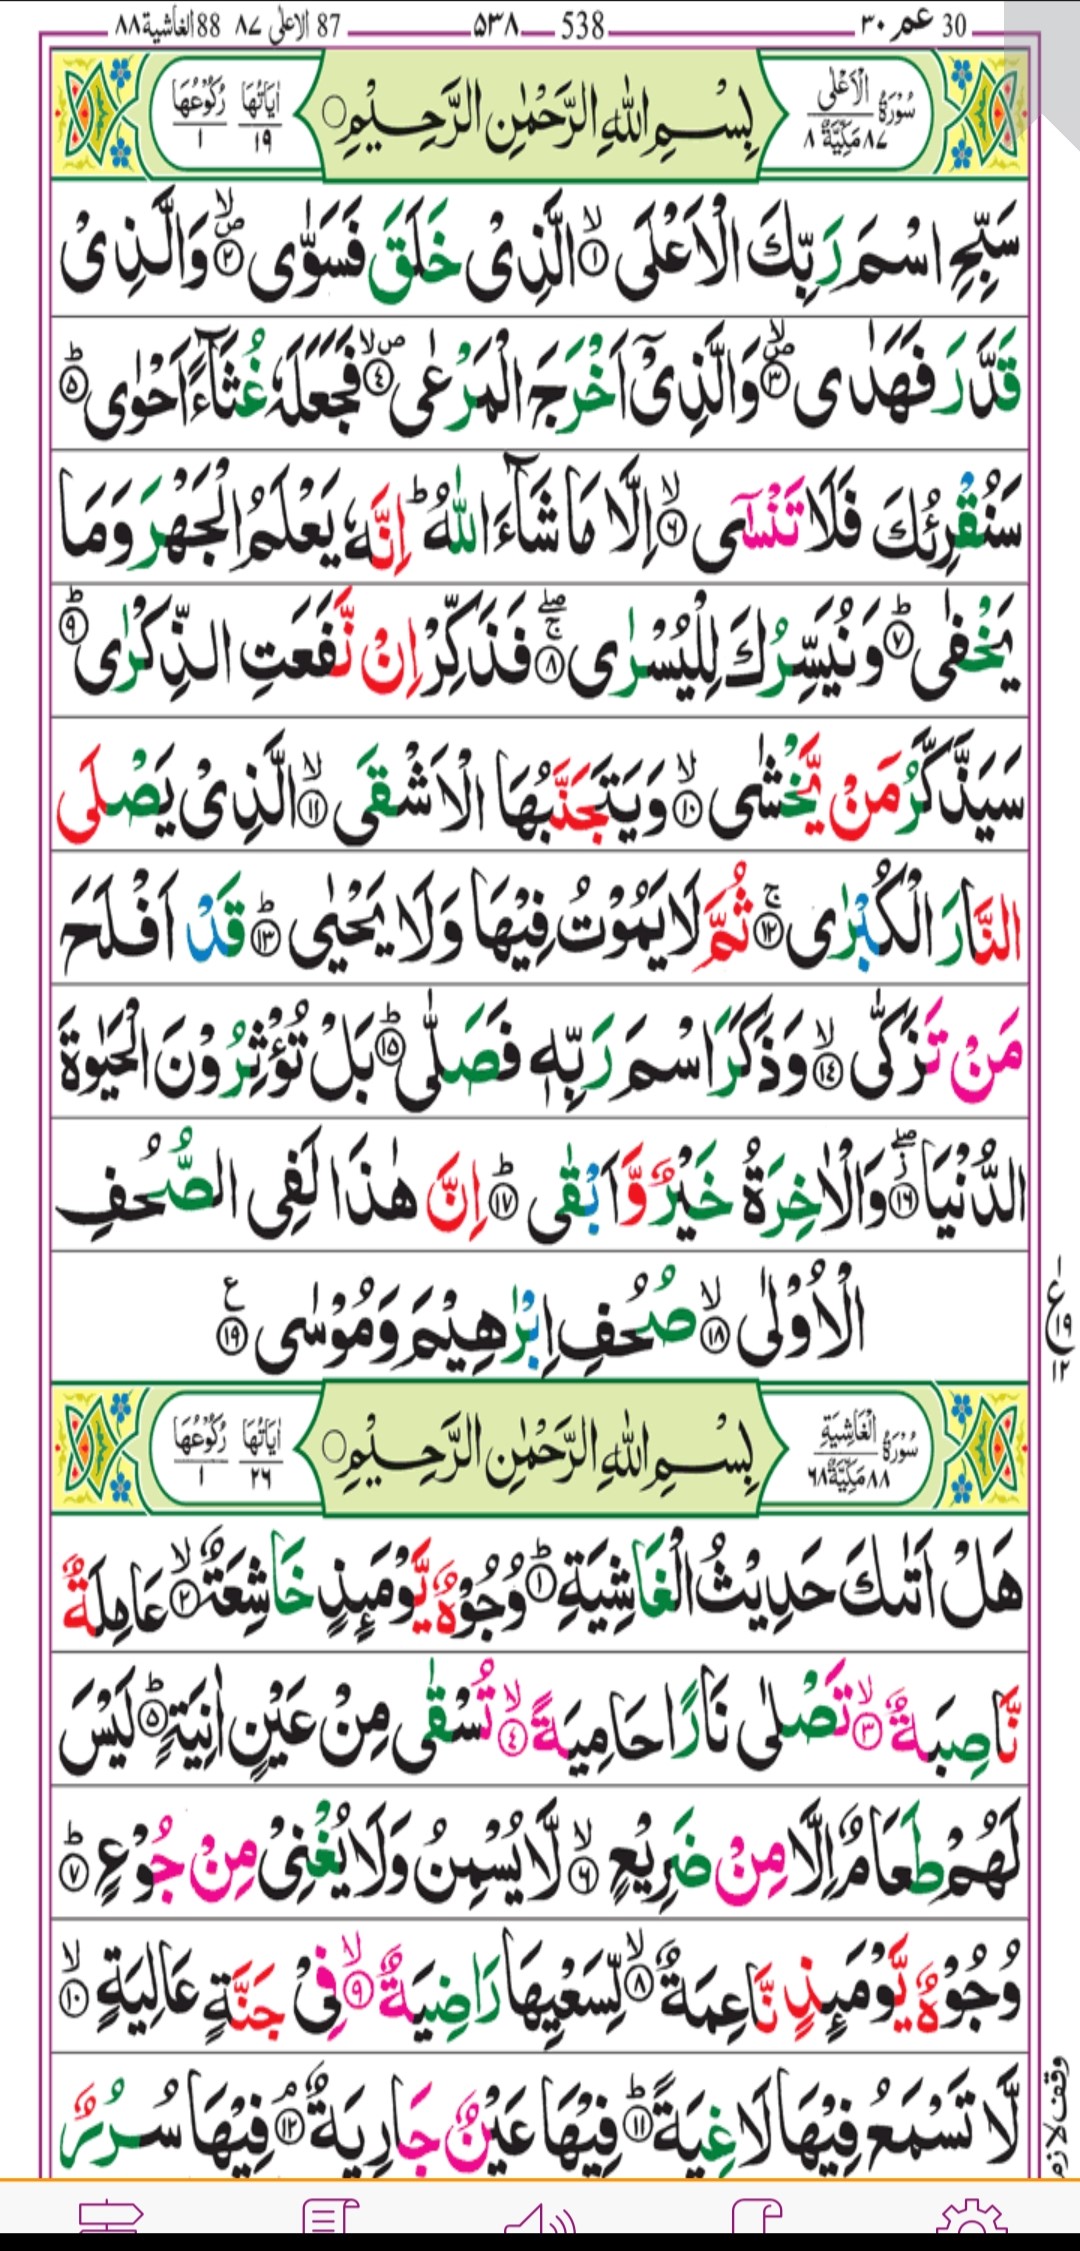 30 عم ٣٠ 538 ۵۳۸ 87 الاعلى ٨٧ 88 الغاشية ٨٨
سُوْرَةُ الْاَعْلٰى ٨٧ مَكِّيَّةٌ ٨ بِسْمِ اللهِ الرَّحْمٰنِ الرَّحِيْمِ ○ اٰيَاتُهَا ١٩ رُكُوْعُهَا ١
سَبِّحِ اسْمَ رَبِّكَ الْاَعْلَى ۙ﴿١﴾ الَّذِىْ خَلَقَ فَسَوّٰى ۪ۙ﴿٢﴾ وَالَّذِىْ
قَدَّرَ فَهَدٰى ۪ۙ﴿٣﴾ وَالَّذِىْۤ اَخْرَجَ الْمَرْعٰى ۪ۙ﴿٤﴾ فَجَعَلَهٗ غُثَآءً اَحْوٰى ؕ﴿۵﴾
سَنُقْرِئُكَ فَلَا تَنْسٰٓى ۙ﴿٦﴾ اِلَّا مَا شَآءَ اللّٰهُ ؕ اِنَّهٗ يَعْلَمُ الْجَهْرَ وَمَا
يَخْفٰى ؕ﴿٧﴾ وَنُيَسِّرُكَ لِلْيُسْرٰى ۚۖ﴿٨﴾ فَذَكِّرْ اِنْ نَّفَعَتِ الذِّكْرٰى ؕ﴿٩﴾
سَيَذَّكَّرُ مَنْ يَّخْشٰى ۙ﴿١٠﴾ وَيَتَجَنَّبُهَا الْاَشْقَى ۙ﴿١١﴾ الَّذِىْ يَصْلَى
النَّارَ الْكُبْرٰى ۚ﴿١٢﴾ ثُمَّ لَا يَمُوْتُ فِيْهَا وَلَا يَحْيٰى ؕ﴿١٣﴾ قَدْ اَفْلَحَ
مَنْ تَزَكّٰى ۙ﴿١٤﴾ وَذَكَرَ اسْمَ رَبِّهٖ فَصَلّٰى ؕ﴿١۵﴾ بَلْ تُؤْثِرُوْنَ الْحَيٰوةَ
الدُّنْيَا ۖ﴿١٦﴾ وَالْاٰخِرَةُ خَيْرٌ وَّاَبْقٰى ؕ﴿١٧﴾ اِنَّ هٰذَا لَفِى الصُّحُفِ
الْاُوْلٰى ۙ﴿١٨﴾ صُحُفِ اِبْرٰهِيْمَ وَمُوْسٰى ﴿١٩﴾ ع
ع ١٩ ١٢
سُوْرَةُ الْغَاشِيَةِ ٨٨ مَكِّيَّةٌ ٦٨ بِسْمِ اللهِ الرَّحْمٰنِ الرَّحِيْمِ ○ اٰيَاتُهَا ٢٦ رُكُوْعُهَا ١
هَلْ اَتٰىكَ حَدِيْثُ الْغَاشِيَةِ ؕ﴿١﴾ وُجُوْهٌ يَّوْمَئِذٍ خَاشِعَةٌ ۙ﴿٢﴾ عَامِلَةٌ
نَّاصِبَةٌ ۙ﴿٣﴾ تَصْلٰى نَارًا حَامِيَةً ۙ﴿٤﴾ تُسْقٰى مِنْ عَيْنٍ اٰنِيَةٍ ؕ﴿۵﴾ لَيْسَ
لَهُمْ طَعَامٌ اِلَّا مِنْ ضَرِيْعٍ ۙ﴿٦﴾ لَّا يُسْمِنُ وَلَا يُغْنِىْ مِنْ جُوْعٍ ؕ﴿٧﴾
وُجُوْهٌ يَّوْمَئِذٍ نَّاعِمَةٌ ۙ﴿٨﴾ لِّسَعْيِهَا رَاضِيَةٌ ۙ﴿٩﴾ فِىْ جَنَّةٍ عَالِيَةٍ ۙ﴿١٠﴾
لَّا تَسْمَعُ فِيْهَا لَاغِيَةً ؕ﴿١١﴾ فِيْهَا عَيْنٌ جَارِيَةٌ ۘ﴿١٢﴾ فِيْهَا سُرُرٌ
وقف لازم